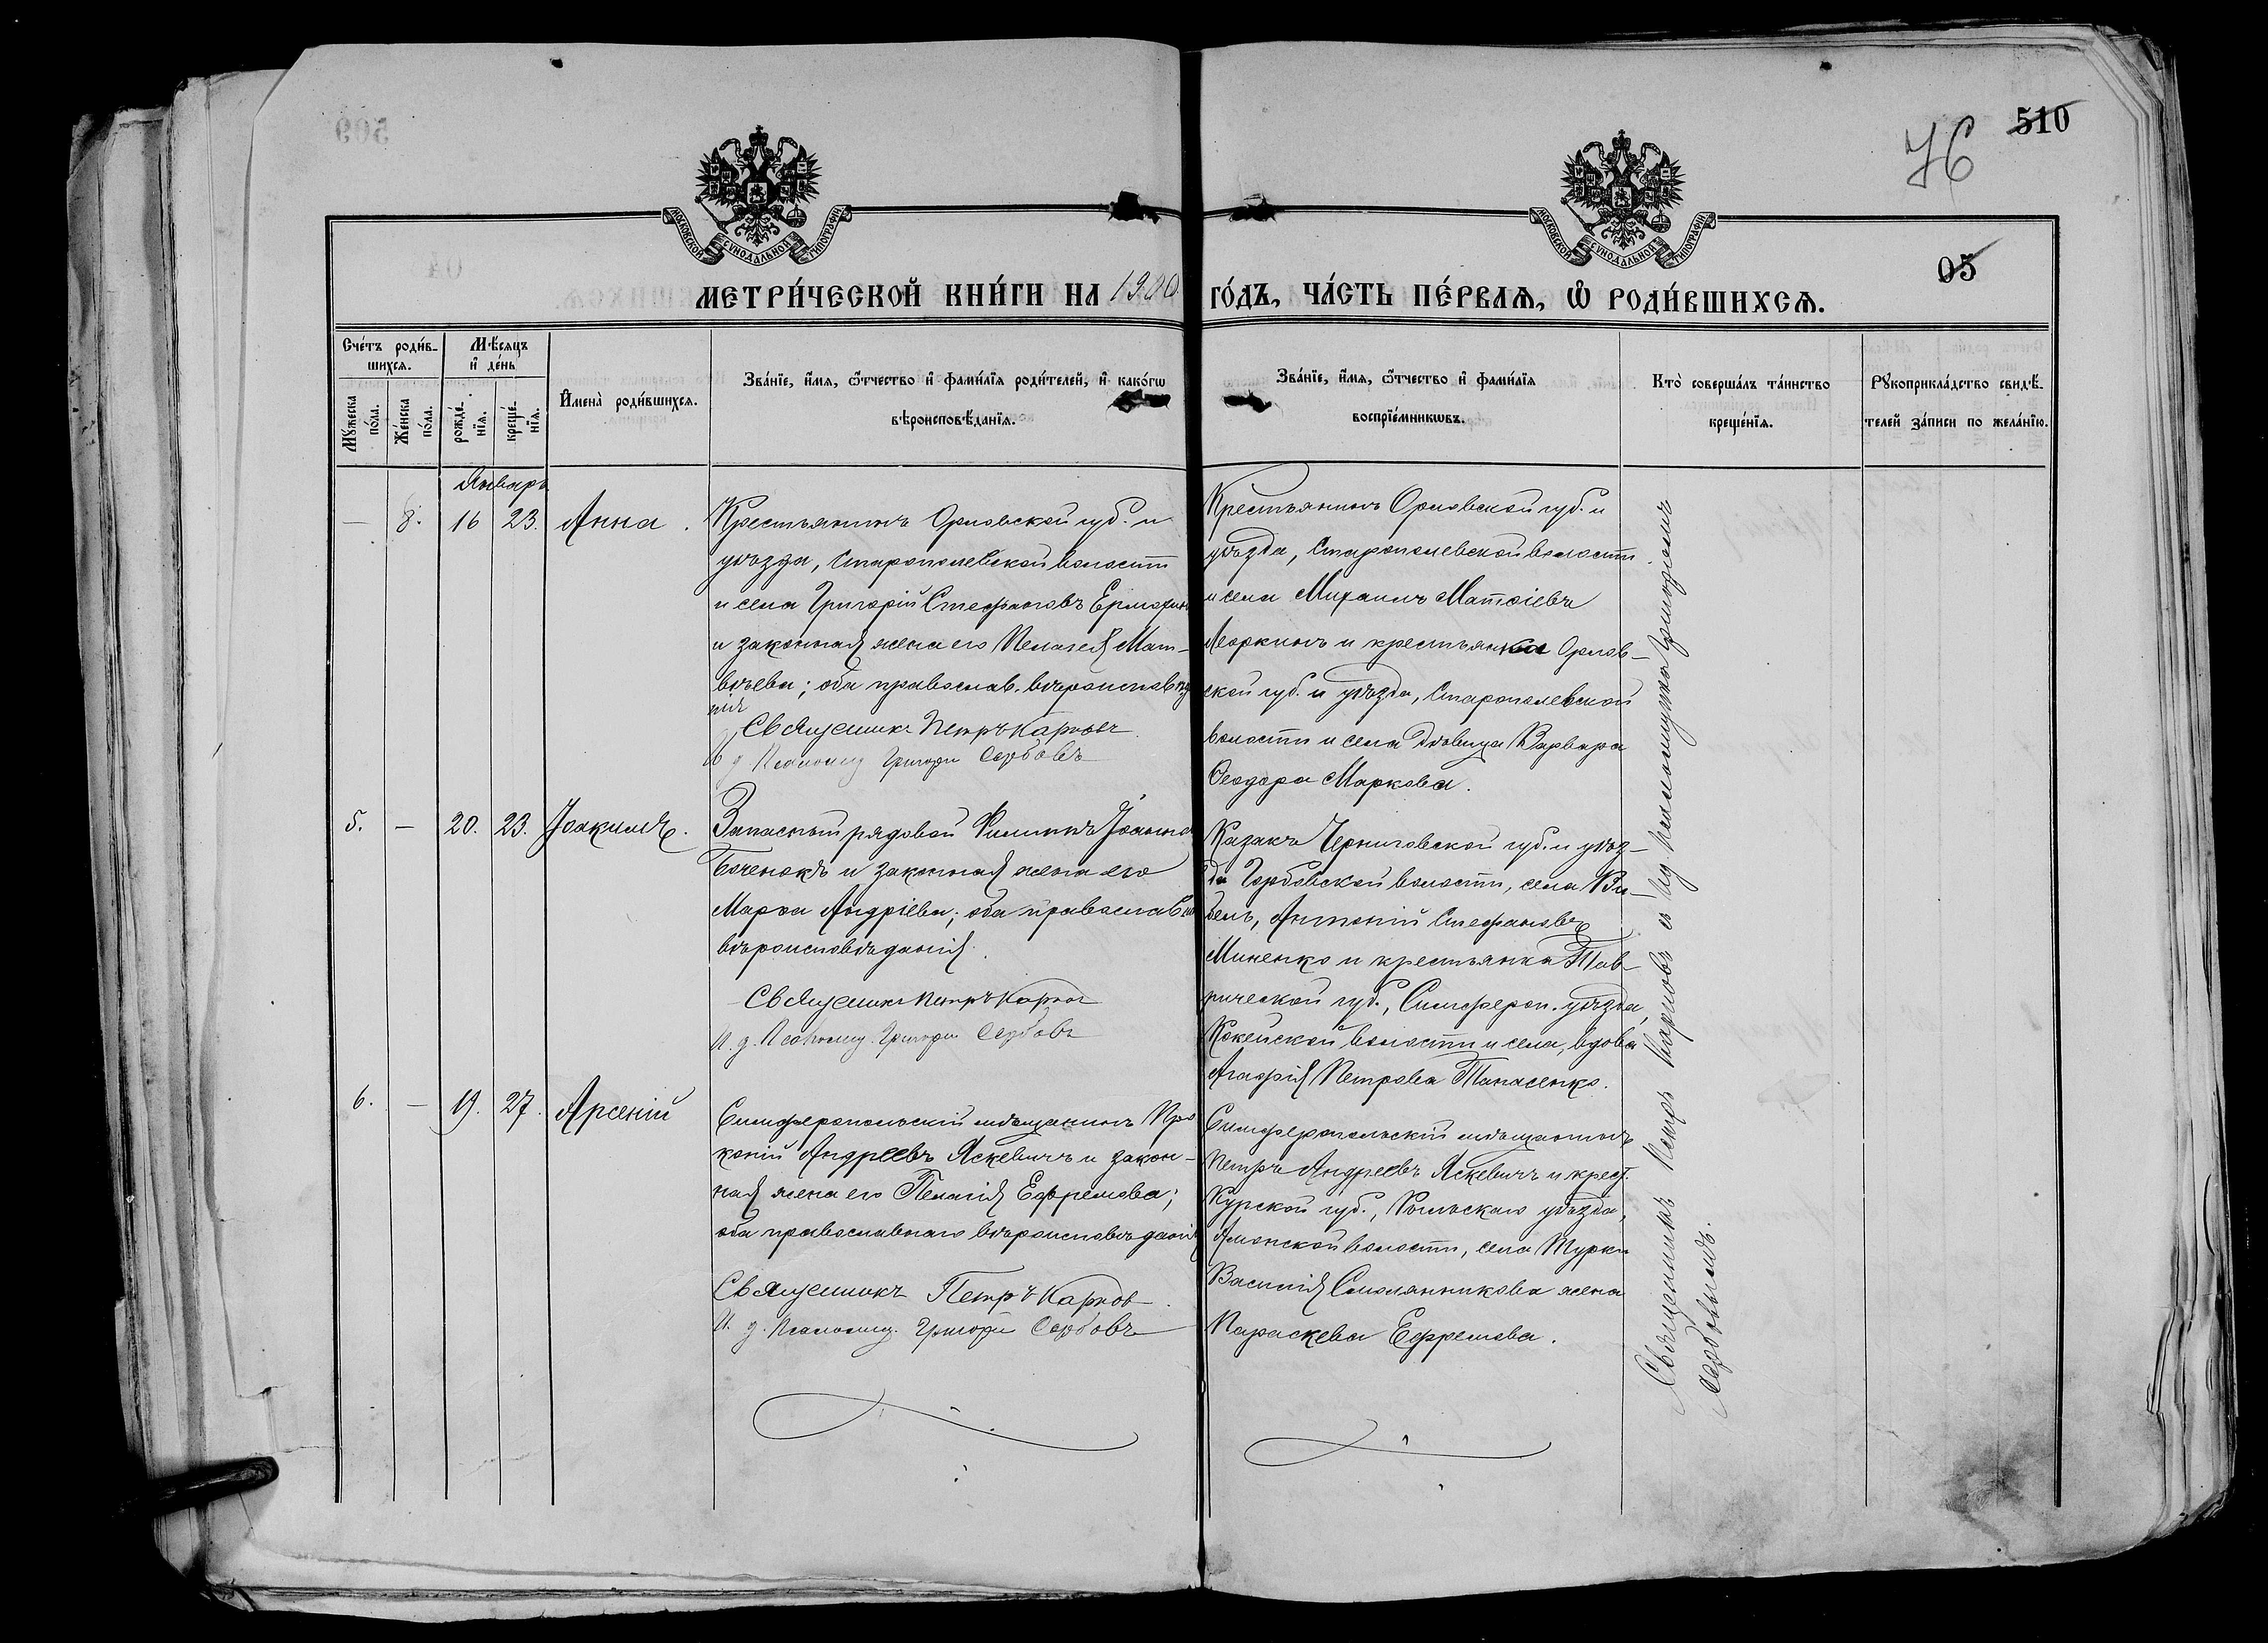 510
76
05
МОСКОВСКОЙ СѴНОДАЛЬНОЙ ТИПОГРАФІИ
МОСКОВСКОЙ СѴНОДАЛЬНОЙ ТИПОГРАФІИ
МЕТРИ́ЧЕСКОЙ КНИ́ГИ НА 1900 ГО́ДЪ, ЧА́СТЬ ПЕ́РВАѦ, Ѽ РОДИ́ВШИХСѦ.
Сче́тъ роди́вшихсѧ.
Мꙋжеска по́ла.
Же́нска по́ла.
Мѣ́сѧцъ и҆ де́нь
рожде́нїѧ.
креще́нїѧ.
И҆мена̀ роди́вшихсѧ.
Зва́нїе, и҆́мѧ, ѻ҆́тчество и҆ фами́лїѧ роди́телей, и҆ како́гѡ
вѣроисповѣ́данїѧ.
Зва́нїе, и҆́мѧ, ѻ҆́тчество и҆ фами́лїѧ
воспрїе́мникѡвъ.
Кто̀ соверша́лъ та́инство
креще́нїѧ.
Рꙋкоприкла́дство свидѣ́телей за́писи по жела́нїю.
Январь
— 8. 16 23. Анна.
Крестьянинъ Орловской губ. и
уѣзда, Старопольевской волости
и села Григорій Стефановъ Ермохин
и законная жена его Пелагея Мат-
вѣева; обa православ. вѣроисповѣда
нія
Священникъ Петръ Карповъ
И д Псаломщ Григорій Сербовъ
Крестьянинъ Орловской губ. и
уѣзда, Старопольевской волости
и села Михаилъ Матѳіевъ
Моркинъ и крестьянка Орлов-
ской губ. и уѣзда, Старопольевской
волости и села дѣвица Варвара
Ѳеодора Маркова.
5. — 20. 23. Іоакимъ.
Запасный рядовой Филиппъ Іоанно
Боченокъ и законная жена его
Марѳа Андріева; оба православн
вѣроисповѣданія.
Священникъ Петръ Карпов
И. д. Псаломщ. Григорій Сербовъ
Казакъ Черниговской губ. и уѣз-
да Горбовской волости, села Ви-
бель, Антоній Стефановъ
Миненко и крестьянка Тав-
рической губ., Симфероп. уѣзда,
Кокейской волости и села, вдова
Агафія Петрова Танасенко.
6. — 19. 27. Арсеній
Симферопольскій мѣщанинъ Про
копій Андреевъ Яскевичъ и закон-
ная жена его Пелагія Ефремова;
оба православнаго вѣроисповѣданія
Священникъ Петръ Карпов
И. д. Псаломщ. Григорій Сербовъ
Симферопольскій мѣщанинъ
Петръ Андреевъ Яскевичъ и крест.
Курской губ., Рыльскаго уѣзда,
Амонской волости, села Турки
Василія Смолянникова жена
Параскева Ефремова.
Священникъ Петръ Карповъ съ и д псаломщика Григоріемъ
Сербовымъ.